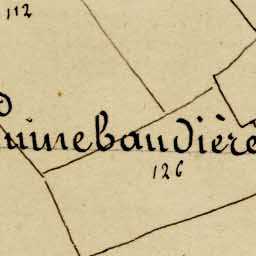 112
uinebaudière
126